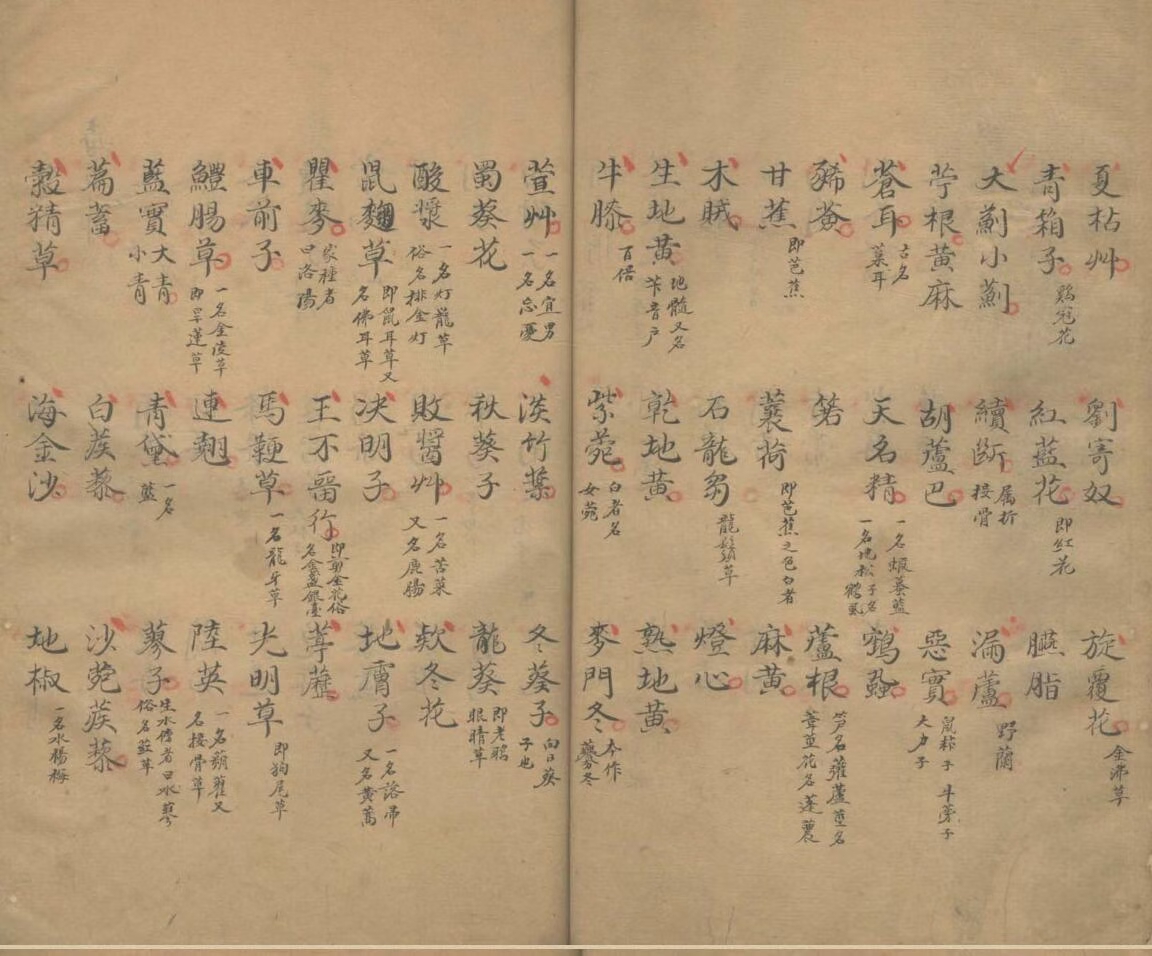 夏枯艸 劉寄奴 旋覆花 金沸草
青箱子 鷄冠花 紅藍花 即紅花 臙脂
大薊小薊 續斷 属折 接骨 漏蘆 野蘭
苧根黃麻 胡蘆巴 惡實 鼠粘子 牛蒡子 大力子
蒼耳 古名葈耳 天名精 一名蝦蟇藍 一名地松 子名鶴虱 鶴蝨
豨薟 箬 蘆根 笋名蘿蘆莖名葦莖花名蓬蕽
甘蕉 即芭蕉 蘘荷 即芭蕉之色白者 麻黃
木賊 石龍芻 龍鬚草 燈心
生地黃 地髓又名芐音戶 乾地黃 熟地黃
牛膝 百倍 紫菀 白者名女菀 麥門冬 本作虋冬
萱艸 一名宜男一名忘憂 淡竹葉 冬葵子 向日葵子也
蜀葵花 秋葵子 龍葵 即老鴉眼睛草
酸漿 一名灯龍草俗名排金灯 敗醬艸 一名苦菜又名鹿腸 欵冬花
鼠麯草 即鼠耳草又名佛耳草 决明子 地膚子 一名落帚又名黄蒿
瞿麥 家種者曰洛陽 王不畱行 即剪金花俗名金盞銀臺 葶藶
車前子 馬鞕草 一名龍牙草 光明草 即狗尾草
鱧腸草 一名金陵草即旱蓮草 連翹 陸英 一名蒴藋又名接骨草
藍實 大青小青 青黛 一名藍 蓼子 生水傍者曰水蓼俗名荭草
萹蓄 白蒺藜 沙菀蒺藜
穀精草 海金沙 地椒 一名水楊梅